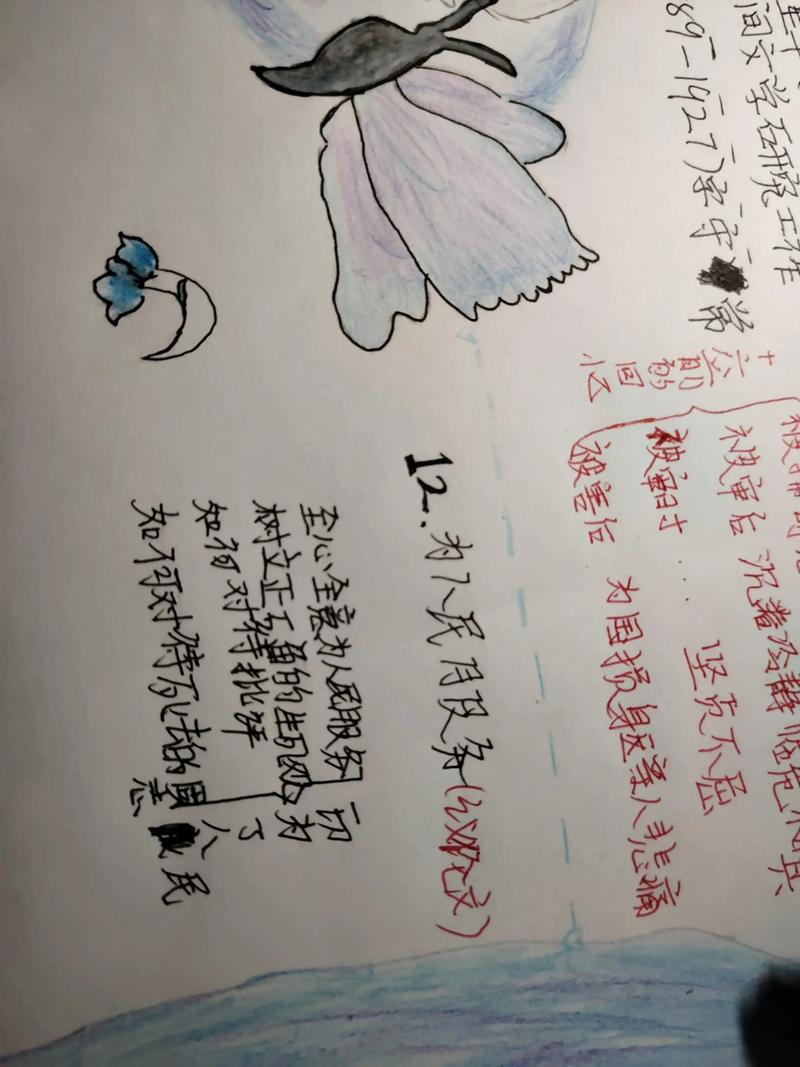 间文学研究工作
89-1927)字守常
十六年前的回忆
沉着冷静 临危不惧
被审后
被审时 … 坚贞不屈
被害后 为国捐躯 亲人悲痛
12.为人民服务(议论文)
至心全意为人民服务
树立正确的生死观
如何对待批评
如何对待死去的同志
一切为了人民